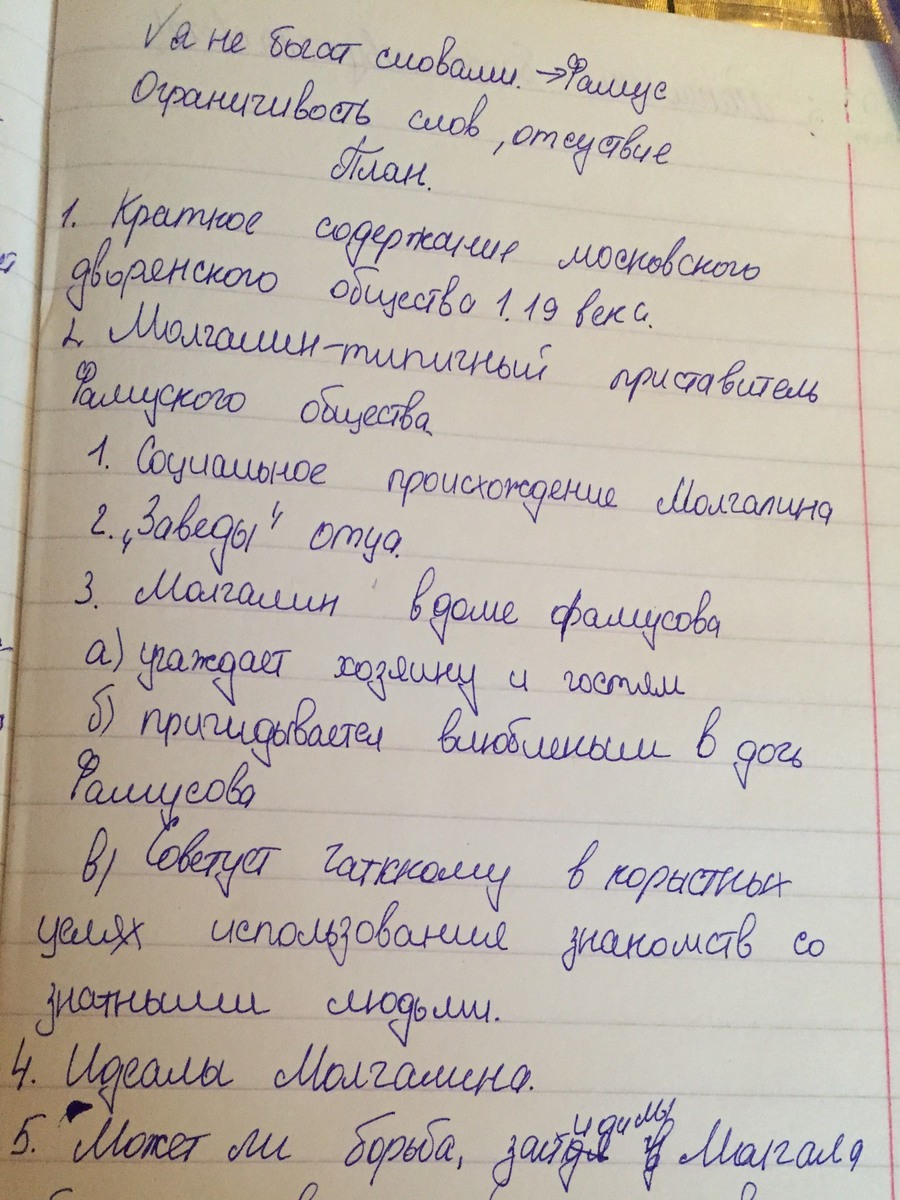 √ я не богат словами. → Фамус
Ограничивость слов, отсуствие
План.
1. Краткое содержание московского
дворянского общества 1. 19 века.
2. Молгалин-типичный приставитель
Фамуского общества.
1. Социальное происхождение Молгалина
2. „Заведы" отца.
3. Молгалин в доме фамусова
а) угаждает хозяину и гостям
б) пригидывается влюбленым в дочь
Фамусова
в) Советует Чатккому в корыстных
целях использования знакомств со
знатными людьми.
4. Идеалы Молгалина.
5. Может ли борьба, Молгаля